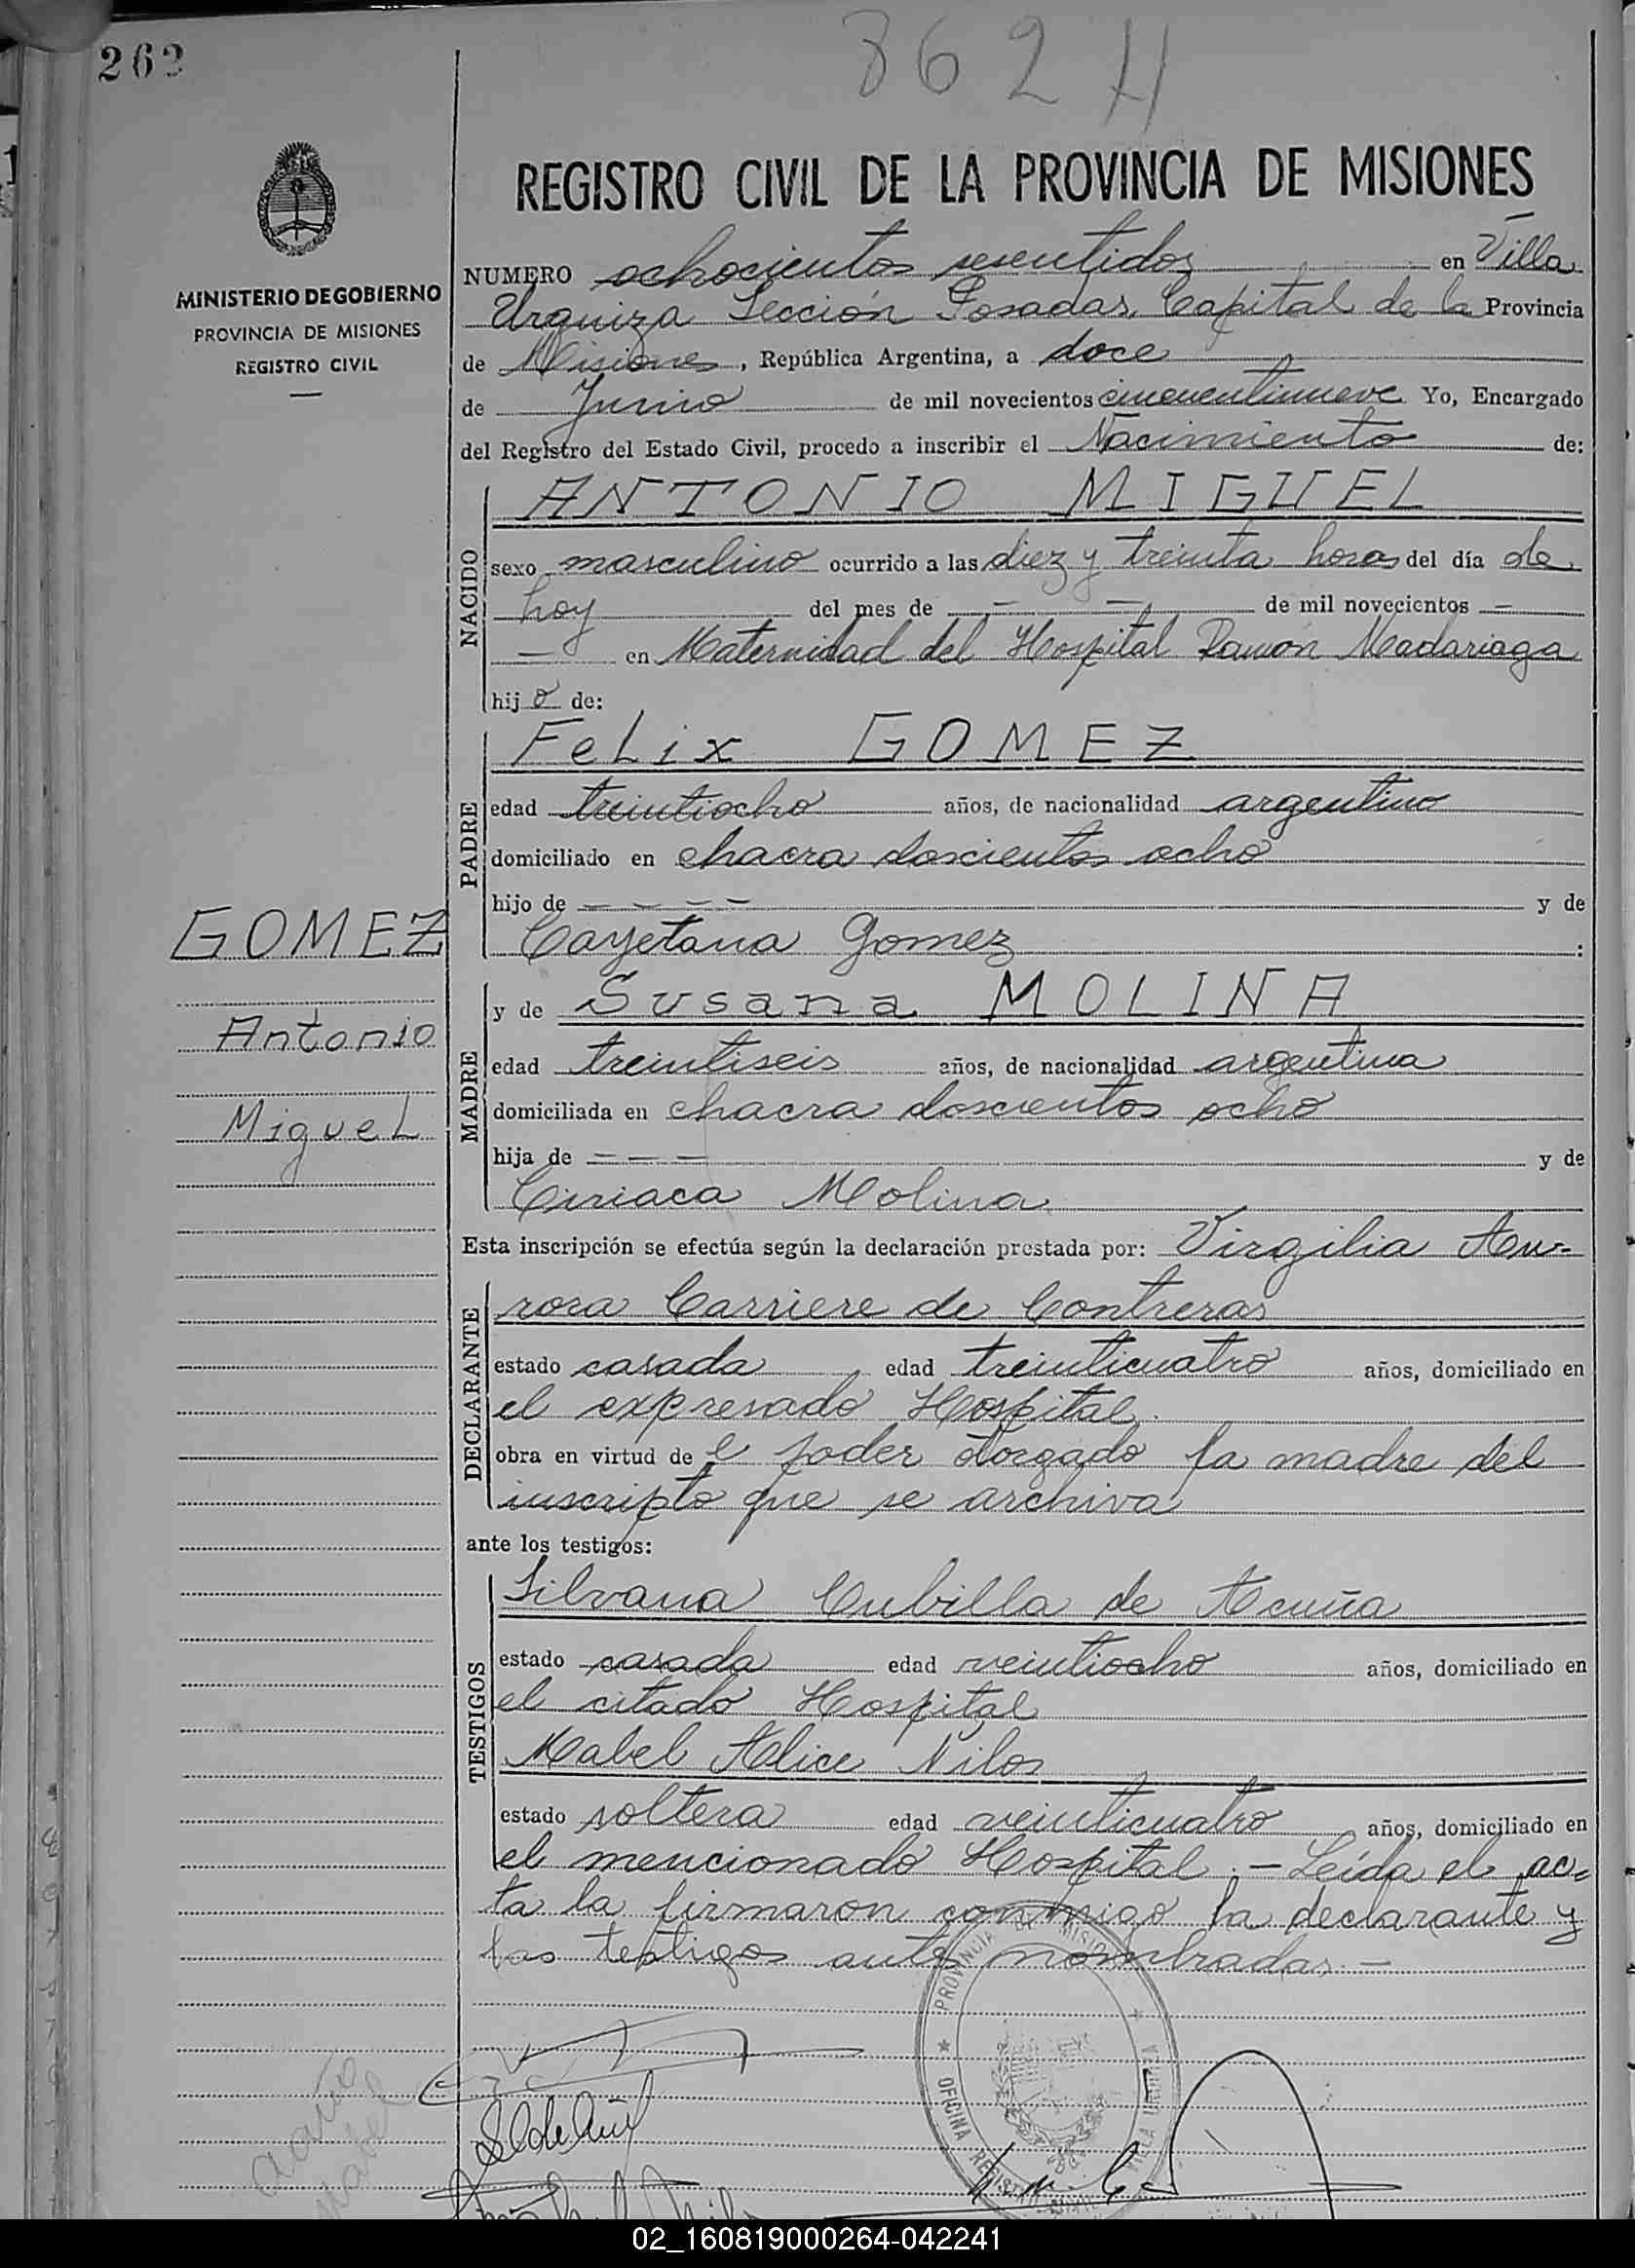 262
862 H
REGISTRO CIVIL DE LA PROVINCIA DE MISIONES
MINISTERIO DE GOBIERNO
PROVINCIA DE MISIONES
REGISTRO CIVIL
NUMERO ochocientos sesentidos en Villa
Urquiza Sección Posadas, Capital de la Provincia
de Misiones, República Argentina, a doce
de Junio de mil novecientos cincuentinueve Yo, Encargado
del Registro del Estado Civil, procedo a inscribir el Nacimiento de:
NACIDO
ANTONIO MIGUEL
sexo masculino ocurrido a las diez y treinta horas del día de
hoy del mes de — — de mil novecientos —
— en Maternidad del Hospital Ramón Madariaga
hijo de:
PADRE
FeLix GOMEZ
edad treintiocho años, de nacionalidad argentino
domiciliado en chacra doscientos ocho
hijo de — — — — y de
Cayetana Gomez :
GOMEZ
Antonio
MigueL
MADRE
y de Susana MOLINA
edad treintiseis años, de nacionalidad argentina
domiciliada en chacra doscientos ocho
hija de — — — y de
Ciriaca Molina
Esta inscripción se efectúa según la declaración prestada por: Virgilia Au-
DECLARANTE
rora Carriere de Contreras
estado casada edad treinticuatro años, domiciliado en
el expresado Hospital.
obra en virtud de l poder otorgado pa madre del
inscripto que se archiva
ante los testigos:
TESTIGOS
Silvana Cubilla de Acuña
estado casada edad veintiocho años, domiciliado en
el citado Hospital
Mabel Alice Nilos
estado soltera edad veinticuatro años, domiciliado en
el mencionado Hospital.— Leída el ac=
ta la firmaron conmigo la declarante y
las testigos ante nombradas.—
PROVINCIA DE MISIONES
OFICINA REGISTRO CIVIL
VILLA URQUIZA
02_160819000264-042241